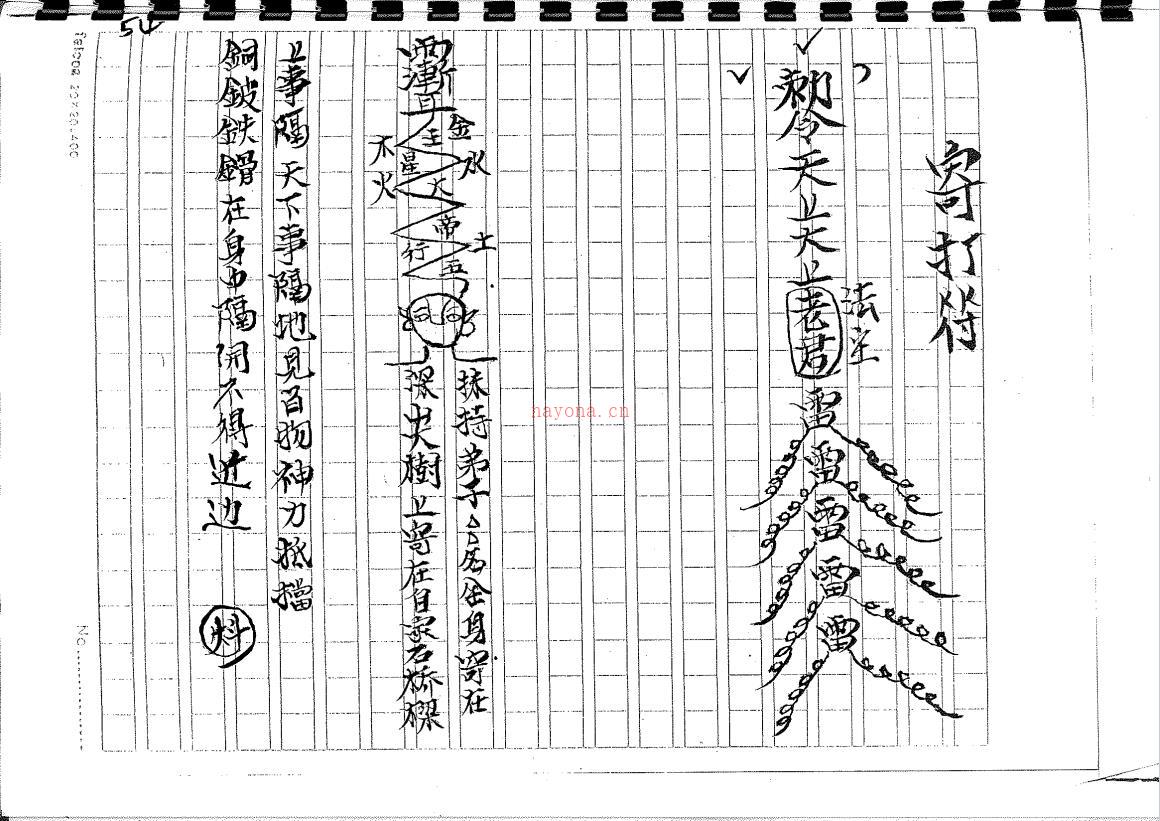 寄打符
法主
勅令天上太上老君雷雷雷雷雷
扶持弟子厶厶名全身寄在
深山大樹上寄在自家石桥樑
金水
木火
土
主星大帝
五行
上事隔天下事隔地見百物神力抵擋
銅鈹鉄鎖在身中隔開不得近边
54
No.
nayona.cn